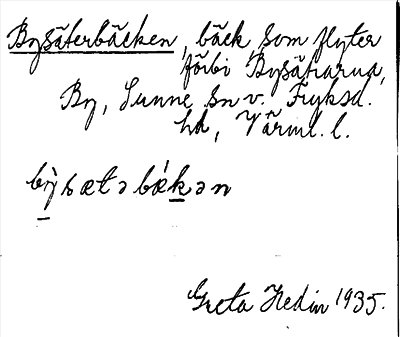 Bysäterbäcken, bäck, som flyter
förbi Bysätrarna,
By, Sunne sn v. Fryksd.
hd, Värml. l.
bỳsætə bǽkən
Greta Hedin 1935.